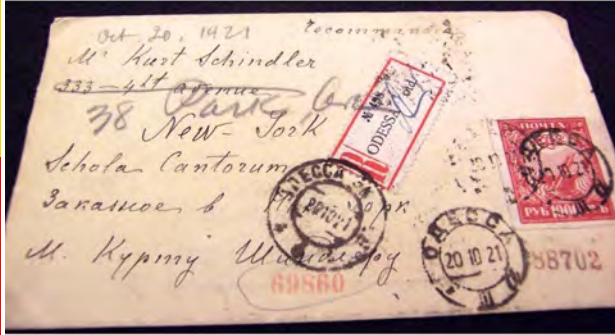 Oct. 20, 1921
Recommandée
Mr Kurt Schindler
333 – 4st avenue
38 Park Ave
New-York
Schola Cantorum
Заказное в Йорк
М. Курту Шиндлеру
R ODESSA
ОДЕССА
20 10 21
ОДЕССА
20 10 21
ПОЧТА
РУБ
69860
88702